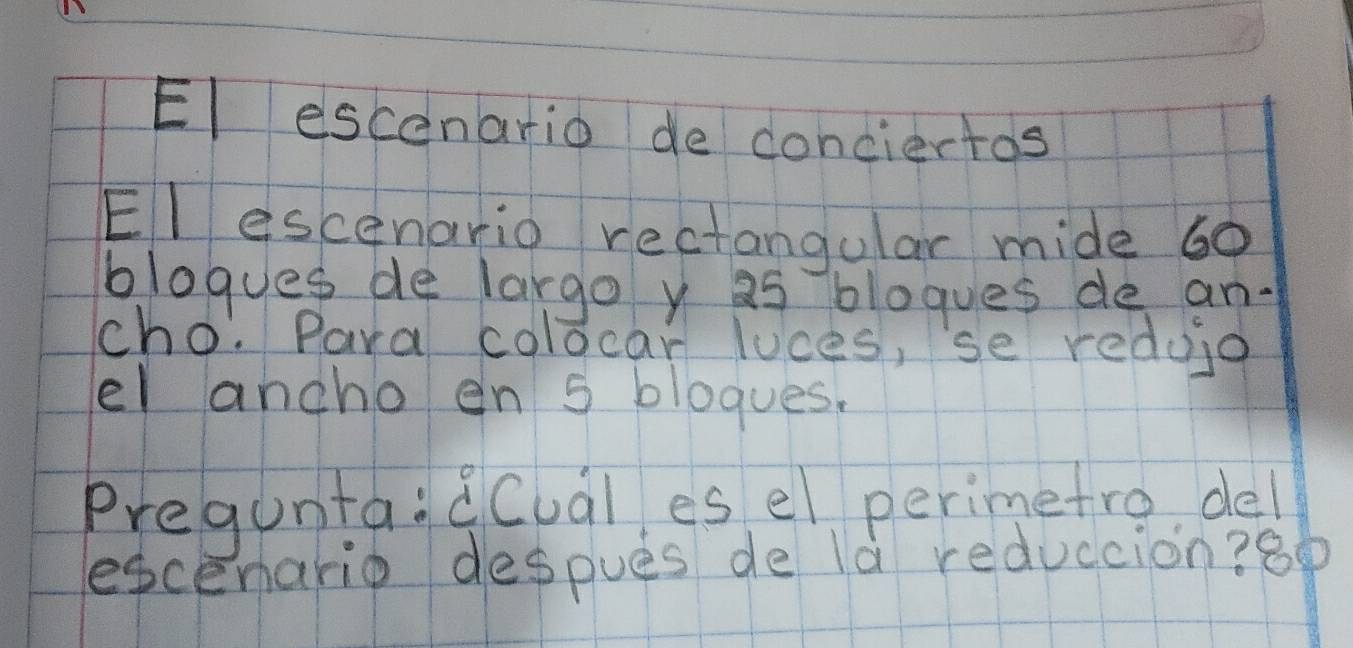 El escenario de conciertos
El escenario rectangular mide 60
bloques de largo y 25 bloques de an-
cho. Para colocar luces, se redujo
el ancho en 5 bloques.
Pregunta: ¿Cuál es el perimetro del
escenario después de la reducción? 80